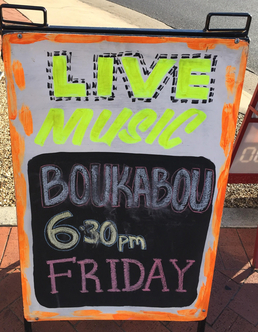 LIVE
MUSIC
BOUKABOU
6:30pm
FRIDAY